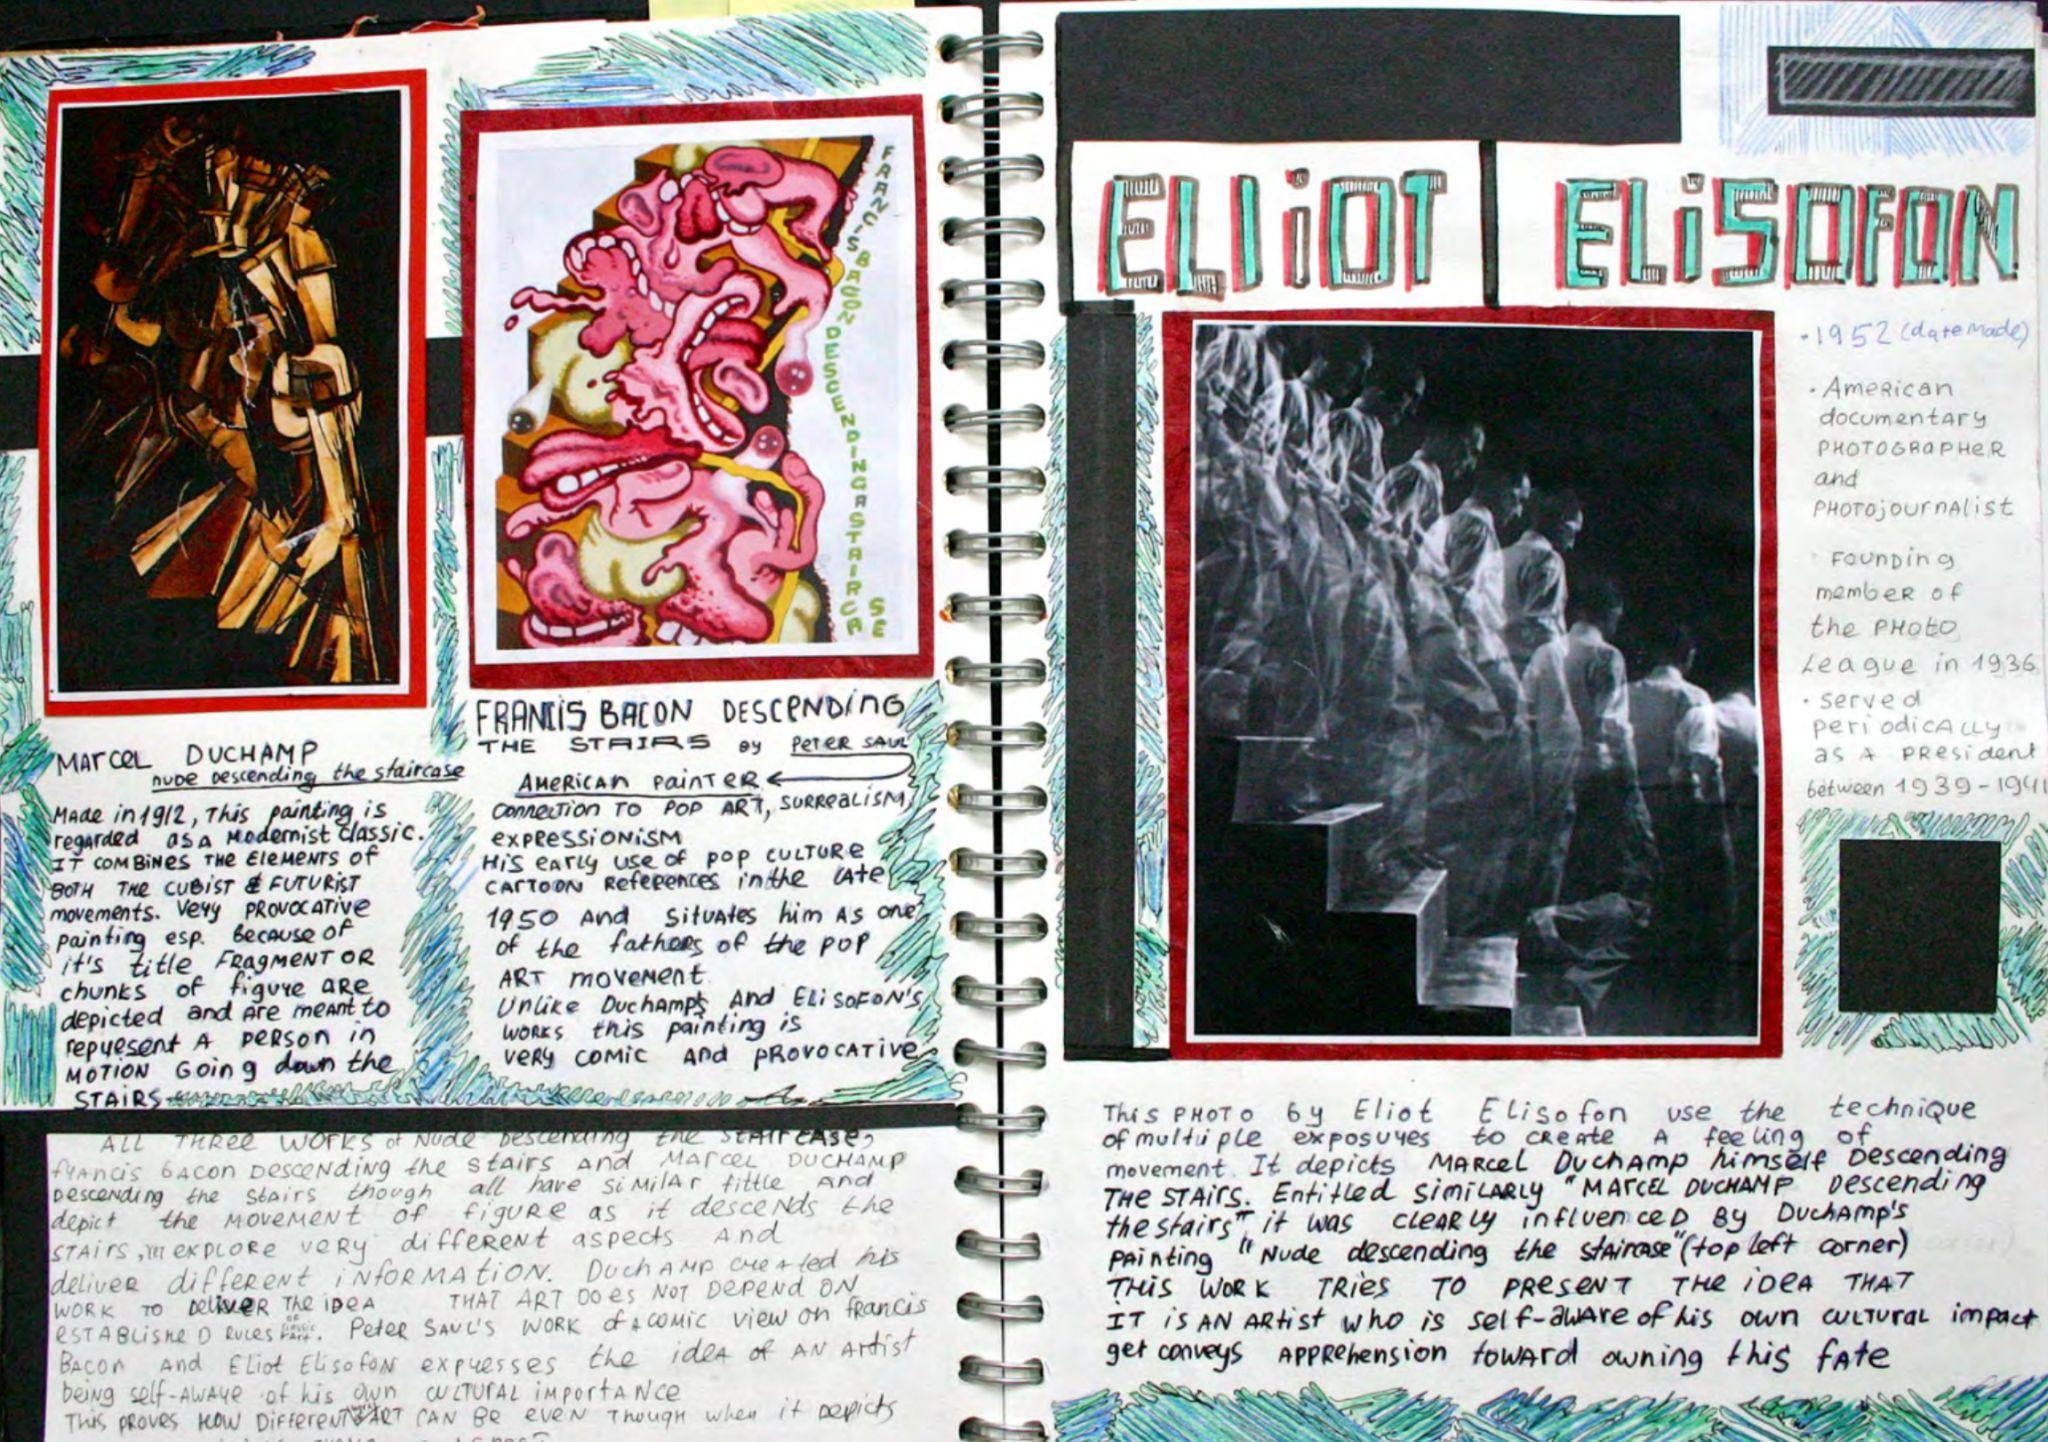 FRANCIS BACON DESCENDING A STAIRCASE
MARCEL DUCHAMP
nude Descending the staircase
Made in 1912, This painting is
regarded as a Modernist classic.
IT COMBINES THE ELEMENTS OF
BOTH THE CUBIST & FUTURIST
movements. Very PROVOCATIVE
painting esp. because of
it's title FRAGMENT OR
chunks of figure ARE
depicted and are meant to
represent A PERSON in
MOTION Going down the
STAIRS
FRANCIS BACON DESCENDING
THE STAIRS BY PETER SAUL
AMERICAN PAINTER
connection TO POP ART, SURREALISM,
expressionism
His early use of POP CULTURE
CARTOON References in the late
1950 AND situates him AS one
of the fathers of the POP
ART movement.
Unlike Duchamp's AND ELISOFON'S
works this painting is
very COMIC AND PROVOCATIVE
ALL THREE WORKS of Nude Descending the STAIRCASE,
francis bacon Descending the stairs and MARCEL DUCHAMP
Descending the stairs though all have similar tittle and
depict the MOVEMENT OF figure as it descends the
STAIRS, explore very different aspects and
deliver different INFORMATION. DUCHAMP created his
WORK TO Deliver THE IDEA THAT ART DOES NOT DEPEND ON
ESTABLISHED RULES OF CLASSIC ART. Peter SAUL'S WORK of A COMIC view on francis
BACON AND Eliot Elisofon expresses the idea of AN Artist
being self-aware of his own CULTURAL IMPORTANCE
THIS PROVES HOW DIFFERENT ART CAN BE EVEN THOUGH when it Depicts
ELIOT ELISOFON
· 1952 (date made)
· American
documentary
PHOTOGRAPHER
and
PHOTOjournalist
· FOUNDING
member of
the PHOTO
League in 1936.
· served
periodically
as A PRESIDENT
between 1939-1941
This PHOTO by Eliot Elisofon use the technique
of multiple exposures to create A feeling of
movement. It depicts MARCEL DUCHAMP himself Descending
THE STAIRS. Entitled similarly "MARCEL DUCHAMP Descending
the stairs", it was clearly influenced BY DUCHAMP'S
painting "Nude descending the staircase" (top left corner)
THIS WORK TRIES TO PRESENT THE IDEA THAT
IT IS AN ARTIST who is self-aware of his own cultural impact
get conveys APPREHENSION TOWARD owning this fate